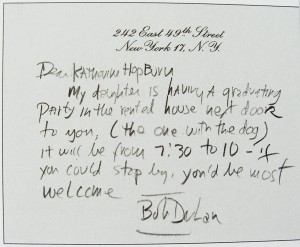 242 East 49th Street
New York 17, N.Y.
Dear KATHARINE HepBurn
My daughter is having A graduating
Party in the rental house next door
to you, (the one with the dog)
it will be from 7:30 to 10 - if
you could stop by, you'd be most
welcome
Bob Dylan